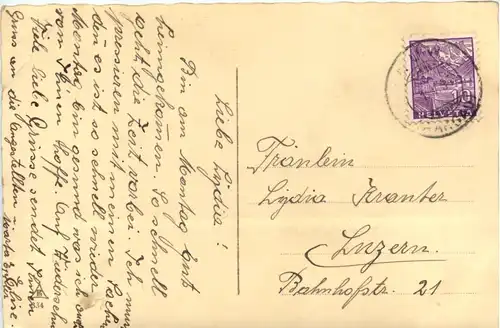 Liebe Lydia!
Bin am Montag erst
heimgekommen. So schnell
geht die Zeit vorbei. Ich muss
pressieren mit meinen Sachen
den es ist so schnell wieder
Montag bin gesund was ich auch
von Ihnen hoffe. Auf Wiedersehn
Viele liebe Grüsse sendet
Gruss an die Angestellten
Fräulein
Lydia Kranter
Luzern.
Bahnhofstr. 21
HELVETIA
10